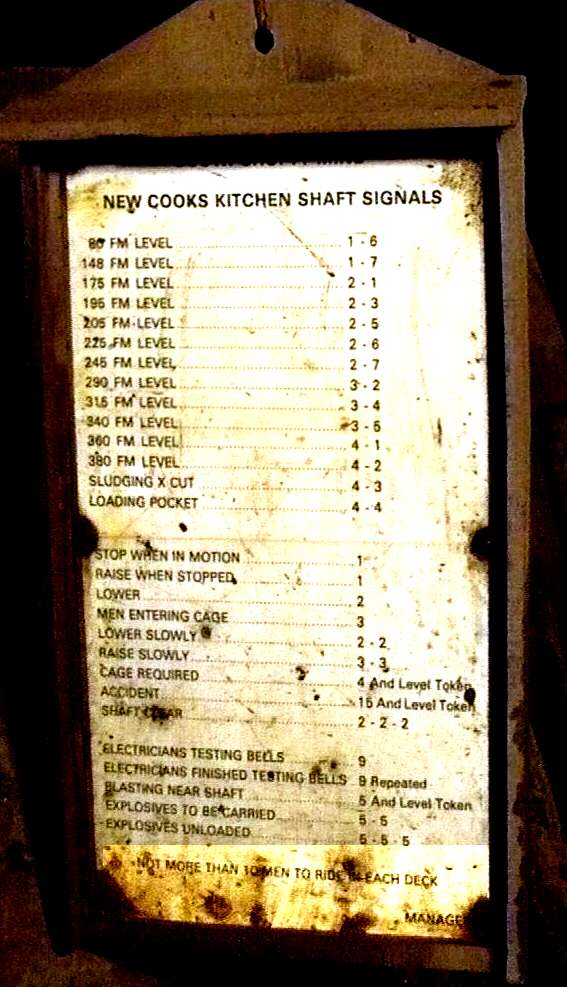 NEW COOKS KITCHEN SHAFT SIGNALS
80 FM LEVEL 1 - 6
148 FM LEVEL 1 - 7
175 FM LEVEL 2 - 1
195 FM LEVEL 2 - 3
205 FM LEVEL 2 - 5
225 FM LEVEL 2 - 6
245 FM LEVEL 2 - 7
290 FM LEVEL 3 - 2
315 FM LEVEL 3 - 4
340 FM LEVEL 3 - 5
360 FM LEVEL 4 - 1
380 FM LEVEL 4 - 2
SLUDGING X CUT 4 - 3
LOADING POCKET 4 - 4
STOP WHEN IN MOTION 1
RAISE WHEN STOPPED 1
LOWER 2
MEN ENTERING CAGE 3
LOWER SLOWLY 2 - 2
RAISE SLOWLY 3 - 3
CAGE REQUIRED 4 And Level Token
ACCIDENT 15 And Level Token
SHAFT CLEAR 2 - 2 - 2
ELECTRICIANS TESTING BELLS 9
ELECTRICIANS FINISHED TESTING BELLS 9 Repeated
BLASTING NEAR SHAFT 5 And Level Token
EXPLOSIVES TO BE CARRIED 5 - 5
EXPLOSIVES UNLOADED 5 - 5 - 5
NOT MORE THAN 10 MEN TO RIDE IN EACH DECK
MANAGER